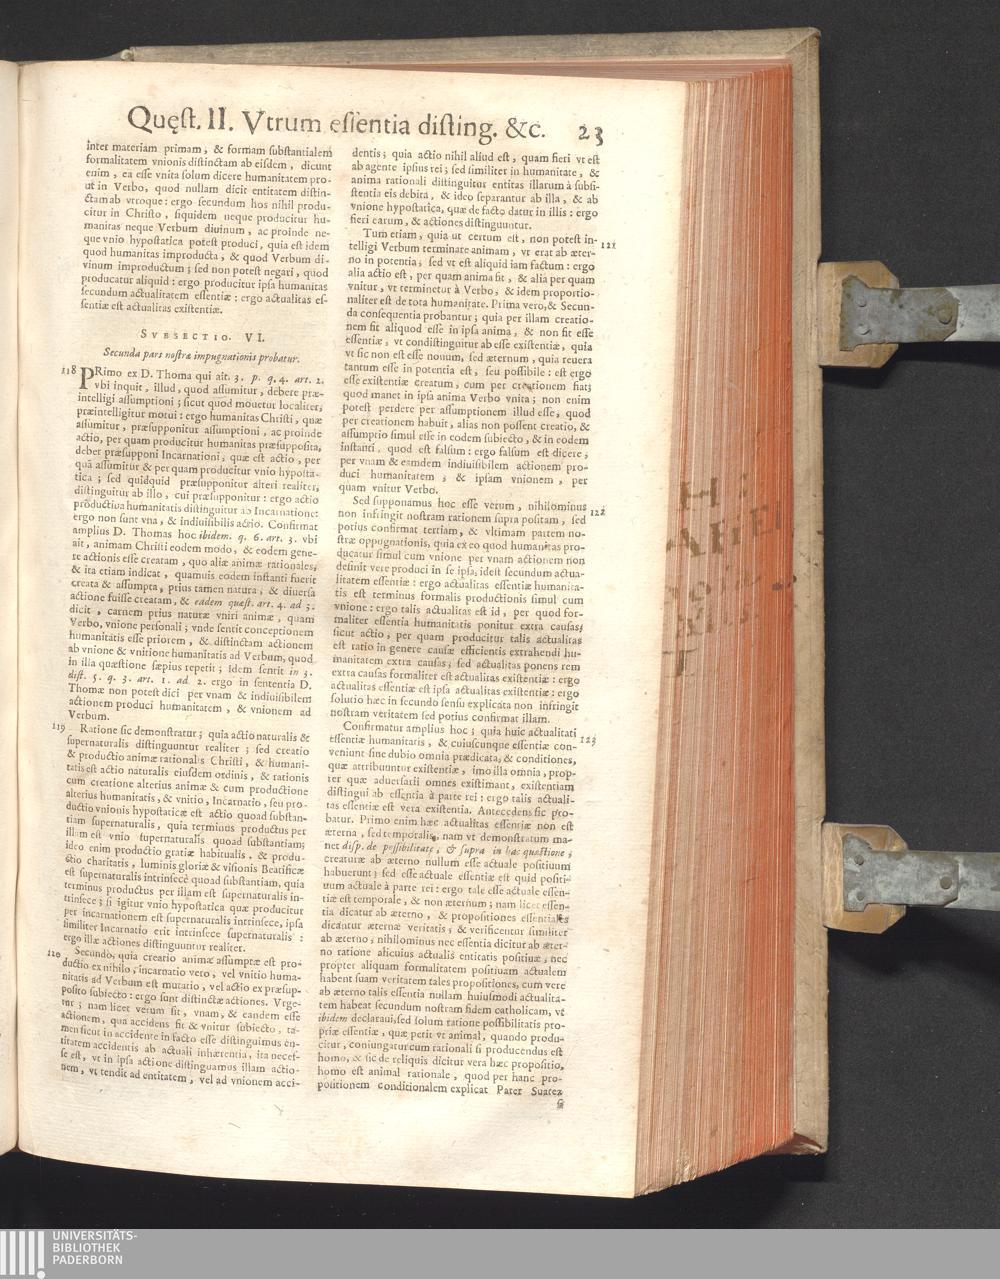 Quęſt. II. Vtrum eſſentia diſting. &c. 23
inter materiam primam, & formam ſubſtantialem
formalitatem vnionis diſtinctam ab eiſdem, dicunt
enim, ea eſſe vnita ſolum dicere humanitatem pro-
ut in Verbo, quod nullam dicit entitatem diſtin-
ctam ab vtroque: ergo ſecundum hos nihil produ-
citur in Chriſto, ſiquidem neque producitur hu-
manitas neque Verbum diuinum, ac proinde ne-
que vnio hypoſtatica poteſt produci, quia eſt idem
quod humanitas improducta, & quod Verbum di-
uinum improductum; ſed non poteſt negari, quod
producatur aliquid: ergo producitur ipſa humanitas
ſecundum actualitatem eſſentiæ: ergo actualitas eſ-
ſentiæ eſt actualitas exiſtentiæ.
SVBSECTIO. VI.
Secunda pars noſtræ impugnationis probatur.
118 PRimo ex D. Thoma qui ait. 3. p. q. 4. art. 2.
vbi inquit, illud, quod aſſumitur, debere præ-
intelligi aſſumptioni; ſicut quod mouetur localiter,
præintelligitur motui: ergo humanitas Chriſti, quæ
aſſumitur, præſupponitur aſſumptioni, ac proinde
actio, per quam producitur humanitas præſuppoſita,
debet præſupponi Incarnationi; quæ eſt actio, per
quã aſſumitur & per quam producitur vnio hypoſta-
tica; ſed quidquid præſupponitur alteri realiter,
diſtinguitur ab illo, cui præſupponitur: ergo actio
productiua humanitatis diſtinguitur ab Incarnatione:
ergo non ſunt vna, & indiuiſibilis actio. Confirmat
amplius D. Thomas hoc ibidem. q. 6. art. 3. vbi
ait, animam Chriſti eodem modo, & eodem gene-
re actionis eſſe creatam, quo aliæ animæ rationales;
& ita etiam indicat, quamuis eodem inſtanti fuerit
creata & aſſumpta, prius tamen natura, & diuerſa
actione fuiſſe creatam, & eadem quæſt. art. 4. ad 3.
dicit, carnem prius naturæ vniri animæ, quam
Verbo, vnione perſonali; vnde ſentit conceptionem
humanitatis eſſe priorem, & diſtinctam actionem
ab vnione & vnitione humanitatis ad Verbum, quod
in illa quæſtione ſæpius repetit; Idem ſentit in 3.
diſt. 5. q. 3. art. 1. ad 2. ergo in ſententia D.
Thomæ non poteſt dici per vnam & indiuiſibilem
actionem produci humanitatem, & vnionem ad
Verbum.
119 Ratione ſic demonſtratur; quia actio naturalis &
ſupernaturalis diſtinguuntur realiter; ſed creatio
& productio animæ rationalis Chriſti, & humani-
tatis eſt actio naturalis eiuſdem ordinis, & rationis
cum creatione alterius animæ & cum productione
alterius humanitatis, & vnitio, Incarnatio, ſeu pro-
ductio vnionis hypoſtaticæ eſt actio quoad ſubſtan-
tiam ſupernaturalis, quia terminus productus per
illam eſt vnio ſupernaturalis quoad ſubſtantiam;
ideo enim productio gratiæ habitualis, & produ-
ctio charitatis, luminis gloriæ & viſionis Beatificæ
eſt ſupernaturalis intrinſecè quoad ſubſtantiam, quia
terminus productus per illam eſt ſupernaturalis in-
trinſece; ſi igitur vnio hypoſtatica quæ producitur
per incarnationem eſt ſupernaturalis intrinſece, ipſa
ſimiliter Incarnatio erit intrinſece ſupernaturalis:
ergo illæ actiones diſtinguuntur realiter.
120 Secundò, quia creatio animæ aſſumptæ eſt pro-
ductio ex nihilo, incarnatio vero, vel vnitio huma-
nitatis ad Verbum eſt mutatio, vel actio ex præſup-
poſito ſubiecto: ergo ſunt diſtinctæ actiones. Vrge-
tur; nam licet verum ſit, vnam, & eandem eſſe
actionem, qua accidens fit & vnitur ſubiecto, tã-
men ſicut in accidente in facto eſſe diſtinguimus en-
titatem accidentis ab actuali inhærentia, ita neceſ-
ſe eſt, vt in ipſa actione diſtinguamus illam actio-
nem, vt tendit ad entitatem, vel ad vnionem acci-
dentis; quia actio nihil aliud eſt, quam fieri vt eſt
ab agente ipſius rei; ſed ſimiliter in humanitate, &
anima rationali diſtinguitur entitas illarum à ſubſi-
ſtentia eis debita, & ideo ſeparantur ab illa, & ab
vnione hypoſtatica, quæ de facto datur in illis: ergo
fieri earum, & actiones diſtinguuntur.
Tum etiam, quia ut certum eſt, non poteſt in- 121
telligi Verbum terminare animam, vt erat ab æter-
no in potentia; ſed vt eſt aliquid iam factum: ergo
alia actio eſt, per quam anima fit, & alia per quam
vnitur, vt terminetur à Verbo, & idem proportio-
naliter eſt de tota humanitate. Prima vero, & Secun-
da conſequentia probantur; quia per illam creatio-
nem fit aliquod eſſe in ipſa anima, & non fit eſſe
eſſentiæ, vt condiſtinguitur ab eſſe exiſtentiæ, quia
vt ſic non eſt eſſe nouum, ſed æternum, quia reuera
tantum eſſe in potentia eſt, ſeu poſſibile: eſt ergo
eſſe exiſtentiæ creatum, cum per creationem fiat;
quod manet in ipſa anima Verbo vnita; non enim
poteſt perdere per aſſumptionem illud eſſe, quod
per creationem habuit, alias non poſſent creatio, &
aſſumptio ſimul eſſe in eodem ſubiecto, & in eodem
inſtanti, quod eſt falſum: ergo falſum eſt dicere,
per vnam & eamdem indiuiſibilem actionem pro-
duci humanitatem, & ipſam vnionem, per
quam vnitur Verbo.
Sed ſupponamus hoc eſſe verum, nihilominus 122
non infringit noſtram rationem ſupra poſitam, ſed
potius confirmat tertiam, & vltimam partem no-
ſtræ oppugnationis, quia ex eo quod humanitas pro-
ducatur ſimul cum vnione per vnam actionem non
deſinit vere produci in ſe ipſa, ideſt ſecundum actua-
litatem eſſentiæ: ergo actualitas eſſentiæ humanita-
tis eſt terminus formalis productionis ſimul cum
vnione: ergo talis actualitas eſt id, per quod for-
maliter eſſentia humanitatis ponitur extra cauſas;
ſicut actio, per quam producitur talis actualitas
eſt ratio in genere cauſæ efficientis extrahendi hu-
manitatem extra cauſas; ſed actualitas ponens rem
extra cauſas formaliter eſt actualitas exiſtentiæ: ergo
actualitas eſſentiæ eſt ipſa actualitas exiſtentiæ: ergo
ſolutio hæc in ſecundo ſenſu explicata non infringit
noſtram veritatem ſed potius confirmat illam.
Confirmatur amplius hoc; quia huic actualitati 123
eſſentiæ humanitatis, & cuiuſcunque eſſentiæ con-
veniunt ſine dubio omnia prædicata, & conditiones,
quæ attribuuntur exiſtentiæ, imo illa omnia, prop-
ter quæ aduerſarii omnes exiſtimant, exiſtentiam
diſtingui ab eſſentia à parte rei: ergo talis actuali-
tas eſſentiæ eſt vera exiſtentia. Antecedens ſic pro-
batur. Primo enim hæc actualitas eſſentiæ non eſt
æterna, ſed temporalis, nam vt demonſtratum ma-
net diſp. de poſſibilitate, & ſupra in hac quæſtione;
creaturæ ab æterno nullum eſſe actuale poſitiuum
habuerunt; ſed eſſe actuale eſſentiæ eſt quid poſiti-
uum actuale à parte rei: ergo tale eſſe actuale eſſen-
tiæ eſt temporale, & non æternum; nam licet eſſen-
tia dicatur ab æterno, & propoſitiones eſſentiales
dicantur æternæ veritatis, & verificentur ſimiliter
ab æterno; nihilominus nec eſſentia dicitur ab æter-
no ratione alicuius actualis entitatis poſitiuæ, nec
propter aliquam formalitatem poſitiuam actualem
habent ſuam veritatem tales propoſitiones, cum vere
ab æterno talis eſſentia nullam huiuſmodi actualita-
tem habeat ſecundum noſtram fidem catholicam, vt
ibidem declaraui, ſed ſolum ratione poſſibilitatis pro-
priæ eſſentiæ, quæ petit vt animal, quando produ-
citur, coniungatur cum rationali ſi producendus eſt
homo, & ſic de reliquis dicitur vera hæc propoſitio,
homo eſt animal rationale, quod per hanc pro-
poſitionem conditionalem explicat Pater Suarez
UNIVERSITÄTS-
BIBLIOTHEK
PADERBORN